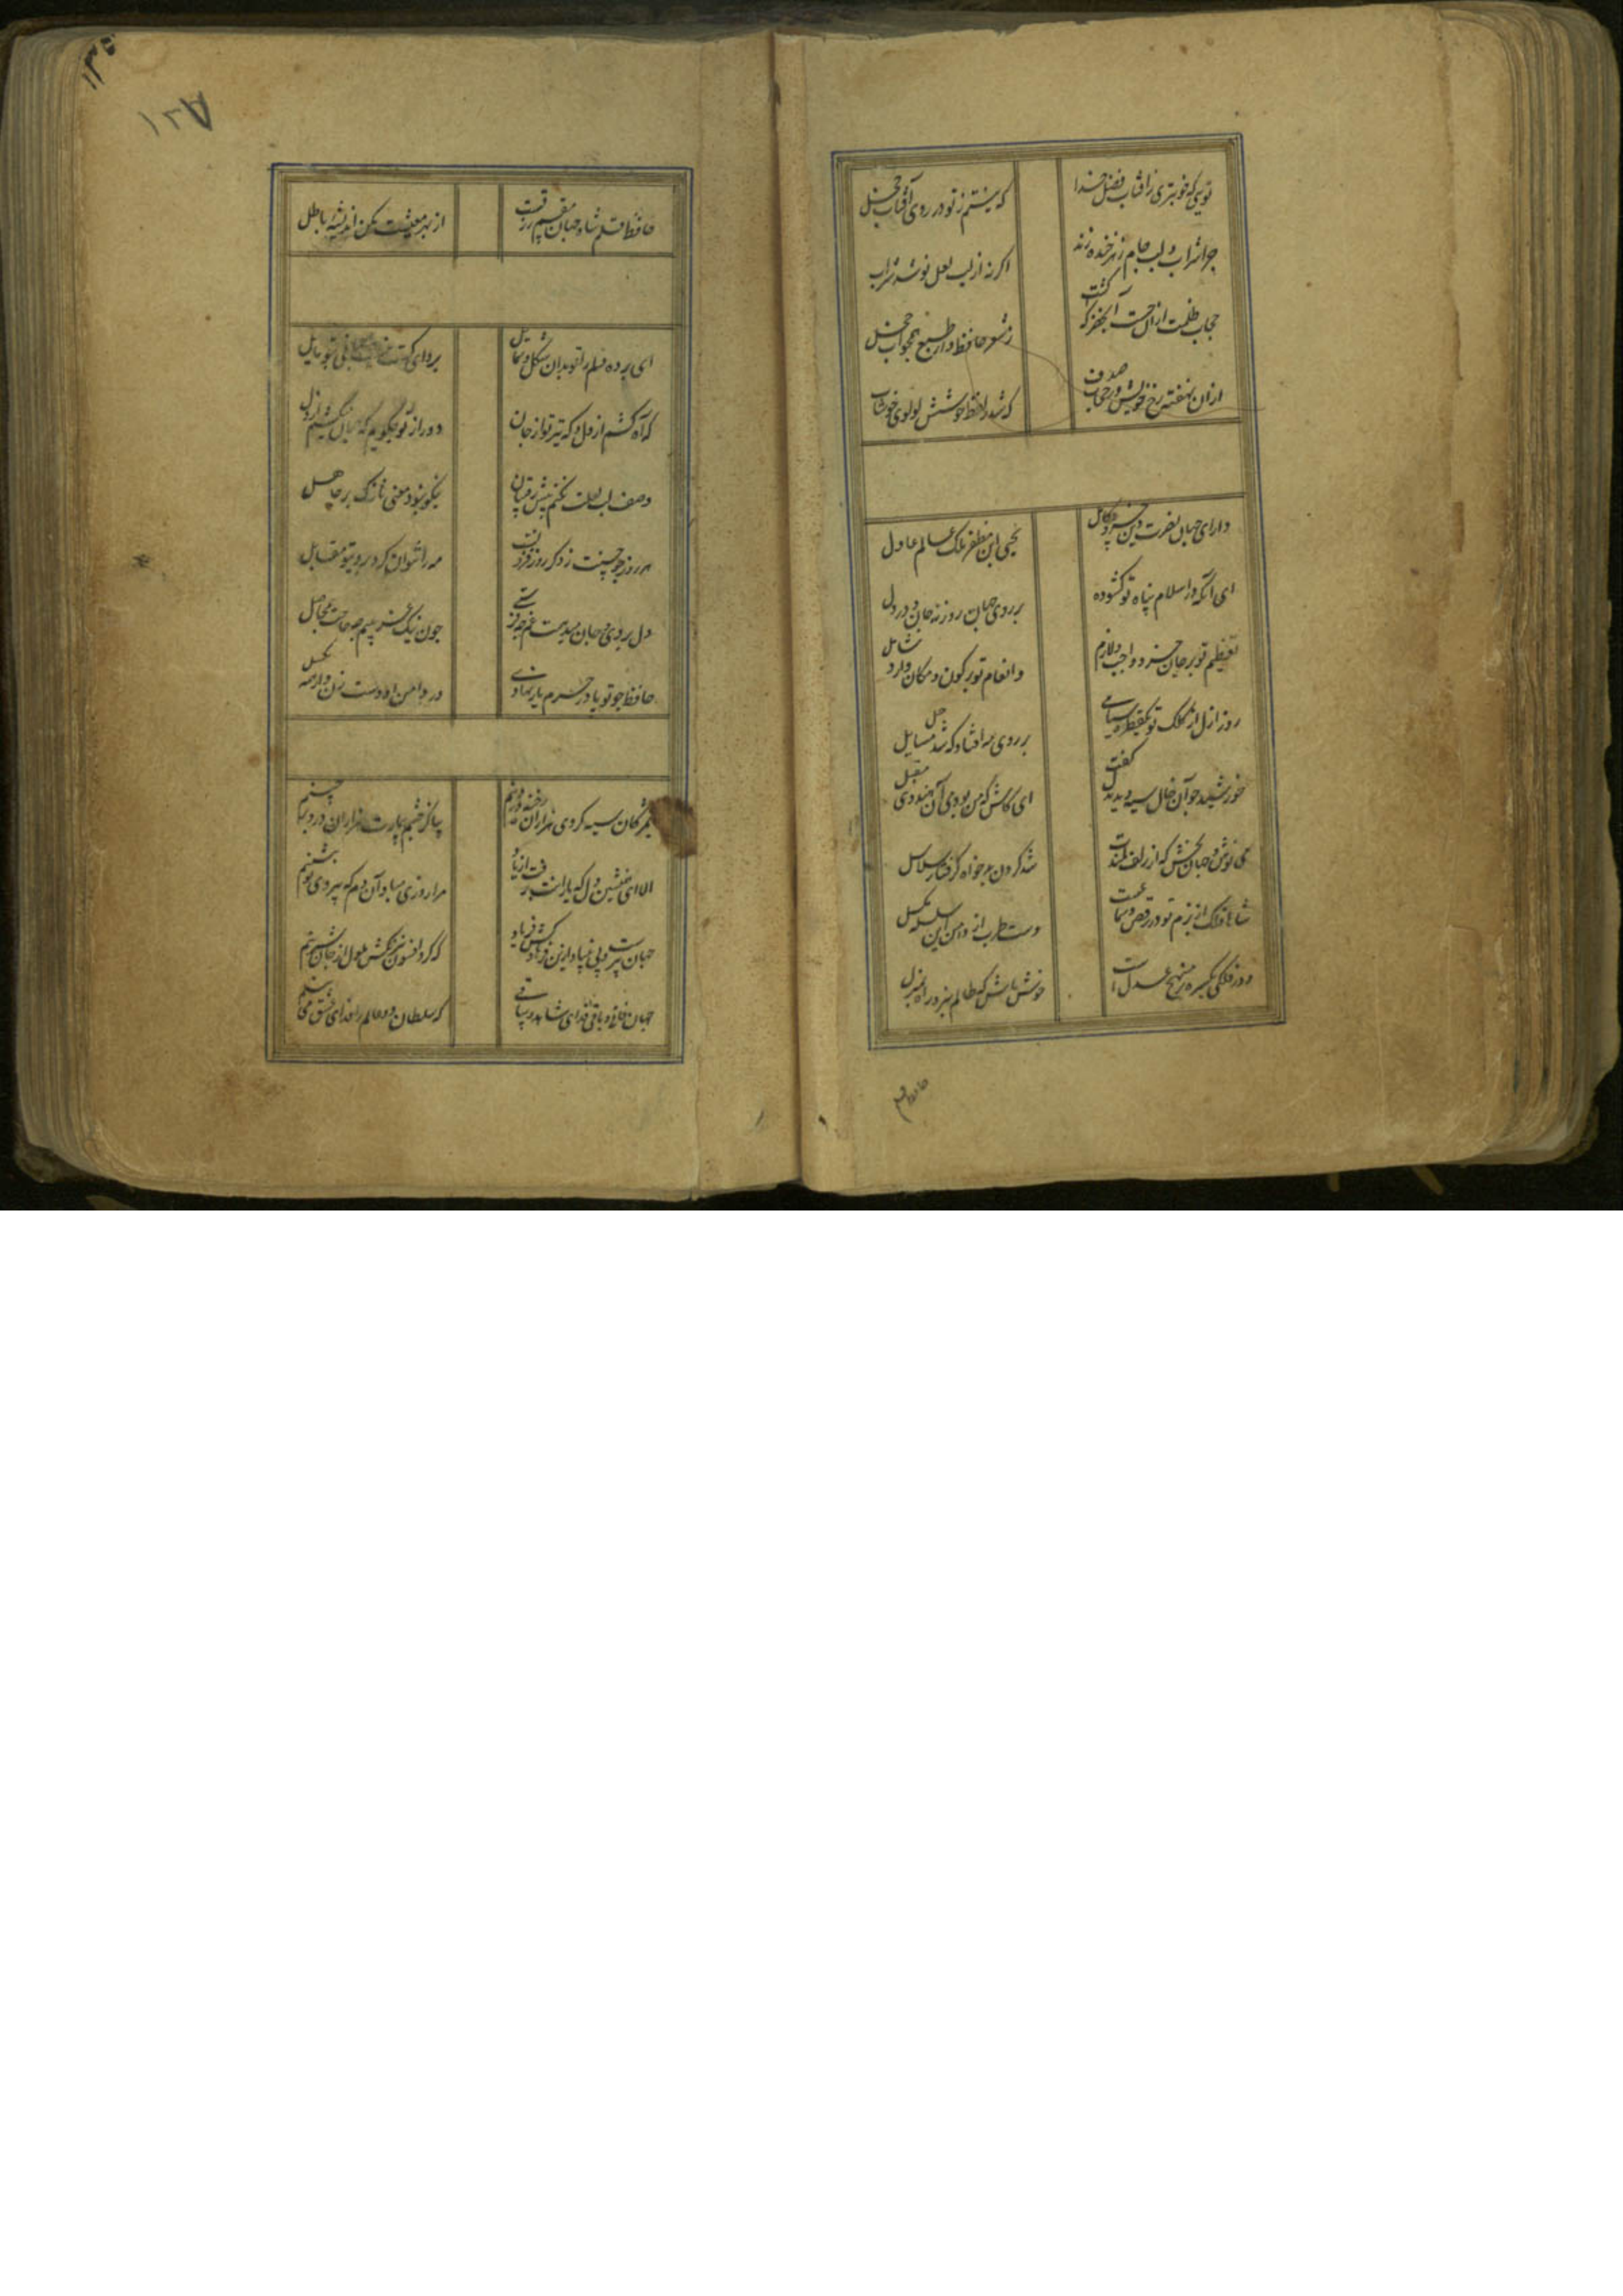 تویی که خوبتری ز آفتاب فضل خدا
که نیستم ز تو در روی آفتاب خجل
چرا شراب و لب جام زهرخنده زند
اگر نه از لب لعل نوشد شراب
حجاب ظلمت از آن بست آب خضر که گشت
ز شعر حافظ و آن طبع همچو آب خجل
از آن نهفته رخ خویش در حجاب صدف
که شد ز لفظ خوشش لولوی خوشاب
دارای جهان نصرت دین خسرو کامل
یحیی ابن مظفر ملک عالم عادل
ای آنکه در اسلام پناه تو کشوده
بر روی جهان روزنه جان و در دل
تعظیم تو بر جان خرد واجب و لازم
وانعام تو بر کون و مکان وارد شامل
روز ازل از کلک تو یک قطره سیاهی
بر روی مه افتاد که شد حل مسایل
خورشید چو آن خال سیه دید بدل گفت
ای کاش که من بودمی آن هندوی مقبل
می نوش و جهان بخش که از زلف کمندت
شد گردن بدخواه گرفتار سلاسل
شاها فلک از بزم تو در رقص و سماعست
دست طرب از دامن این سلسله مگسل
دور فلکی یکسره بر منهج عدل است
خوش باش که ظالم نبرد راه بمنزل
حافظ قلم شاه جهان مقسم رزقست
از بهر معیشت مکن اندیشه باطل
ای برده دلم را تو بدان شکل و شمایل
پروای کست نی و جهانی بتو مایل
که آه کشم از دل و که تیر تو از جان
دور از تو چکویم که چها میکشم از دل
وصف لب لعلت نکنم پیش رقیبان
نیکو نبود معنی نازک بر جاهل
هر روز چو حسنت ز دکر روز فزونست
مه را نتوان کرد بروی تو مقابل
دل بردی و جان میدهمت غم چه فرستی
چون نیک غمینیم چه حاجت بمحاصل
حافظ چو تو پا در حرم یار نهادی
در دامن او دست زن و از همه بگسل
بمژگان سیه کردی هزاران رخنه در دینم
بیا کز چشم بیمارت هزاران درد برچینم
الا ای همنشین دل که یارانت برفت از یاد
مرا روزی مباد آن دم که بی یاد تو بنشینم
جهان پیرست و بی بنیاد ازین فرهادکش فریاد
که کرد افسون نیرنکش ملول از جان شیرینم
جهان فانی و باقی فدای شاهد و ساقی
که سلطان دو عالم را فدای عشق می بینم
۱۳۸